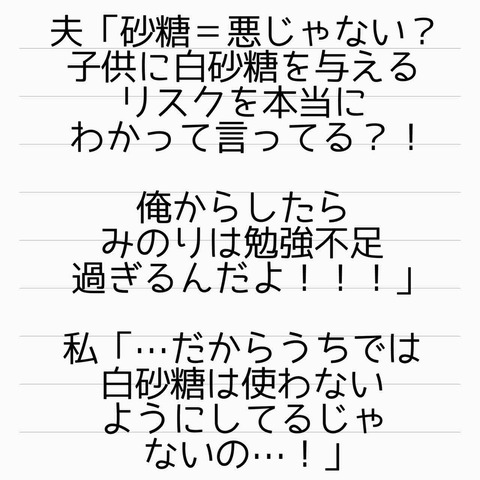 夫「砂糖＝悪じゃない？
子供に白砂糖を与える
リスクを本当に
わかって言ってる？！
俺からしたら
みのりは勉強不足
過ぎるんだよ！！！」
私「…だからうちでは
白砂糖は使わない
ようにしてるじゃ
ないの…！」